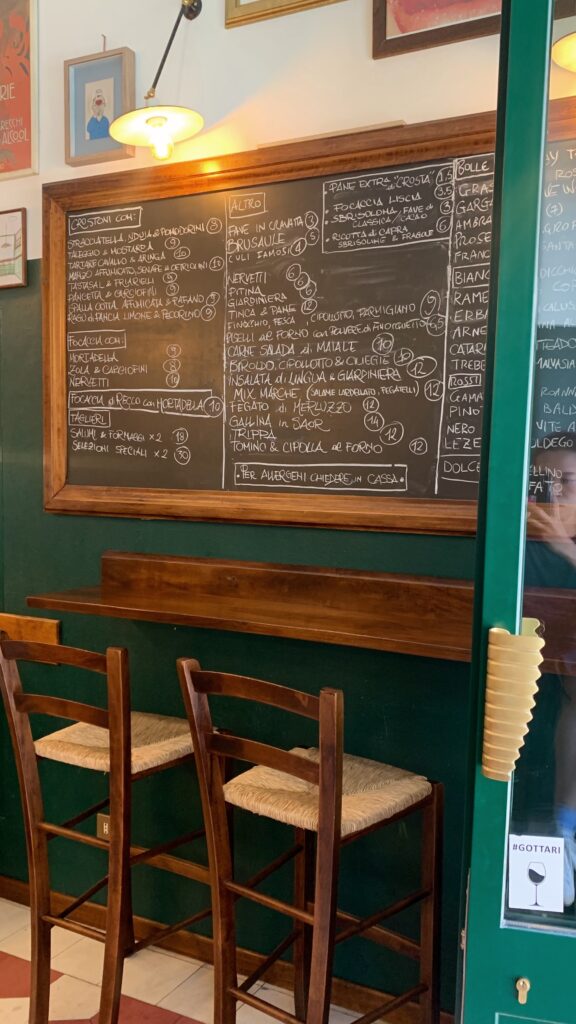 RIE
RECCHI
ALCOOL
CROSTONI CON:
STRACCIATELLA, NDUJA & POMODORINI 8
TALEGGIO & MOSTARDA 9
TARTARE CAVALLO & ARINGA 10
MANZO AFFUMICATO, SENAPE & CETRIOLINI
TASTASAL & FRIARIELLI
PANCETTA & CARCIOFINI
SPALLA COTTA AFFUMICATA & RAFANO 9
RAGÙ di PANCIA LIMONE & PECORINO 9
FOCACCIA CON:
MORTADELLA
ZOLA & CARCIOFINI 8
NERVETTI 10
FOCACCIA di RECCO con MORTADELLA 10
TAGLIERI
SALUMI & FORMAGGI x 2 18
SELEZIONI SPECIALI x 2 30
ALTRO
FAVE IN CRAVATA 3
BRUSAULE 4
CULI FAMOSI 5
NERVETTI 6
PITINA
GIARDINIERA
TINCA & PANE 12
FINOCCHIO, PESCA, CIPOLLOTTO, PARMIGIANO 9
PISELLI al FORNO con POLVERE di FINOCCHIETTO 6,5
CARNE SALADA di MAIALE 10
BIROLDO, CIPOLLOTTO & CILIEGIE 10
INSALATA di LINGUA & GIARDINIERA 12
MIX MARCHE (SALAME LARDELLATO, FEGATELLI) 12
FEGATO di MERLUZZO 12
GALLINA in SAOR 14
TRIPPA 12
TOMINO & CIPOLLA al FORNO 12
• PER ALLERGENI CHIEDERE in CASSA •
PANE EXTRA "CROSTA" 1.5
• FOCACCIA LISCIA 3.5
• SBRISOLONA, FAVE di CLASSICA / CACAO
• RICOTTA di CAPRA SBRISOLINE & FRAGOLE 6
BOLLE
GRAS
GARGA
AMBRA
PROSE
FRANC
BIANC
RAME
ERBA
ARNE
CATAR
TREBB
ROSSI
CIAMA
PINOT
NERO
LEZE
DOLCE
#GOTTARI